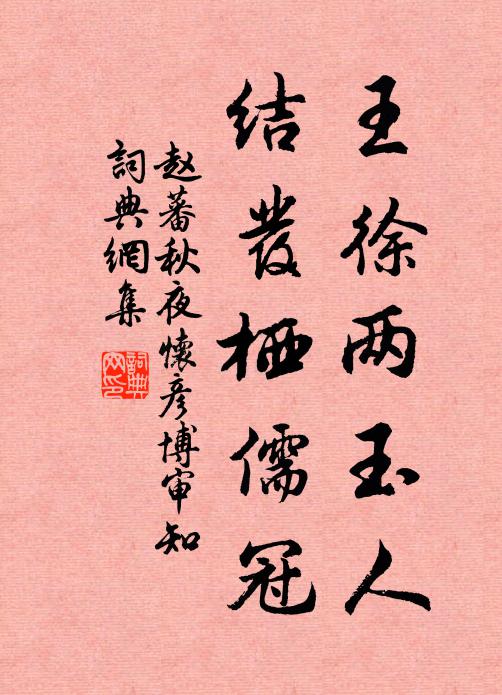 王徐两玉人
结发栖儒冠
赵蕃秋夜怀彦博审知
词典网集
词典网印